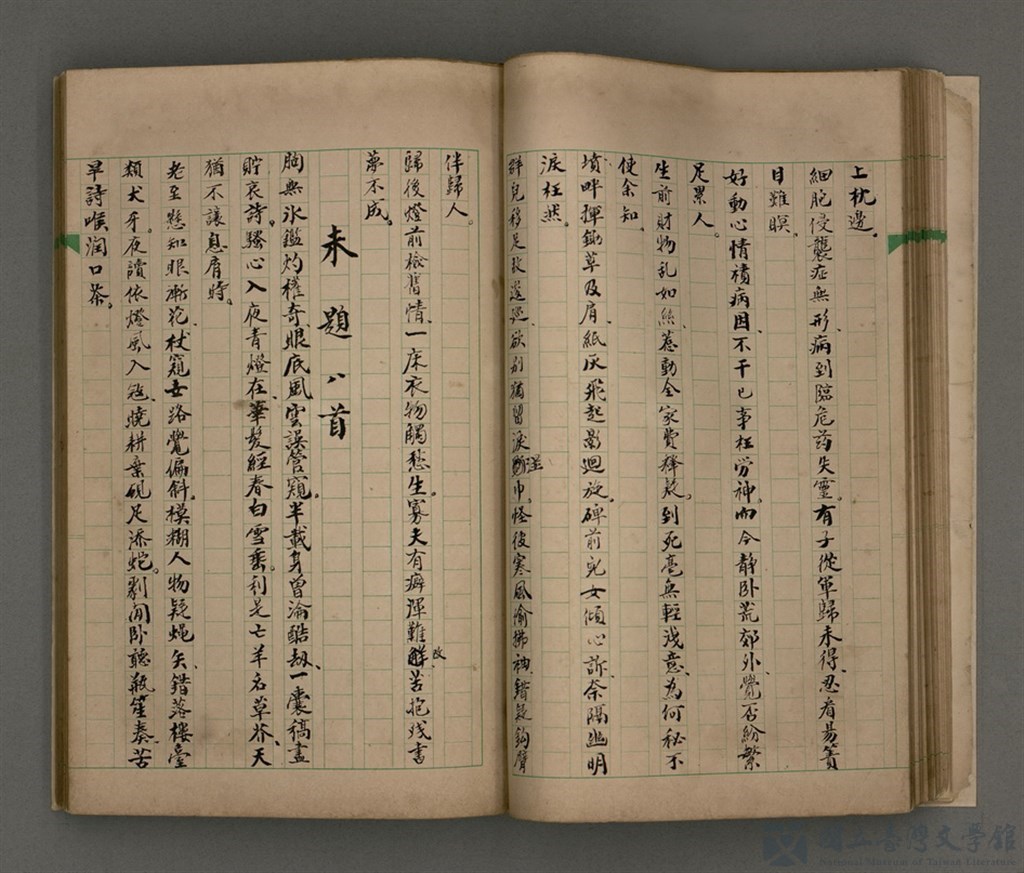 上枕邊。
細胞侵襲症無形、病到臨危药失靈。有子從軍歸未得、忍看易簀
目難瞑。
好動心情積病因、不干已事枉労神。而今静卧荒郊外、覺否紛繁
足累人。
生前財物乱如絲、惹動全家費釋疑。到死毫無輕洩意、為何秘不
使余知。
墳畔揮鋤草及肩、紙灰飛起影迴旋。碑前兒女傾心訴、奈隔幽明
淚枉然。
絆兒移足故遲遲、欲別猶留淚溼巾。怪後寒風偷拂袖、錯疑鈎臂
伴歸人。
歸後燈前檢舊情、一床衣物觸愁生。寡夫有癖渾難改、苦抱残書
夢不成。
未題八首
胸無氷鑑灼權奇、眼底風雲誤管窺。半載身曾淪酷劫、一囊稿盡
貯哀詩。騷心入夜青燈在、華髪經春白雪垂。利是亡羊名草芥、天
猶不讓息肩時。
老至懸知眼漸花、杖窺去路覺偏斜。模糊人物疑蝇矢、錯落樓臺
類犬牙。夜讀依燈風入冠、曉耕棄硯足添蛇。剩閒卧聽瓶笙奏、苦
旱詩喉潤口茶。
國立臺灣文學館
National Museum of Taiwan Literature